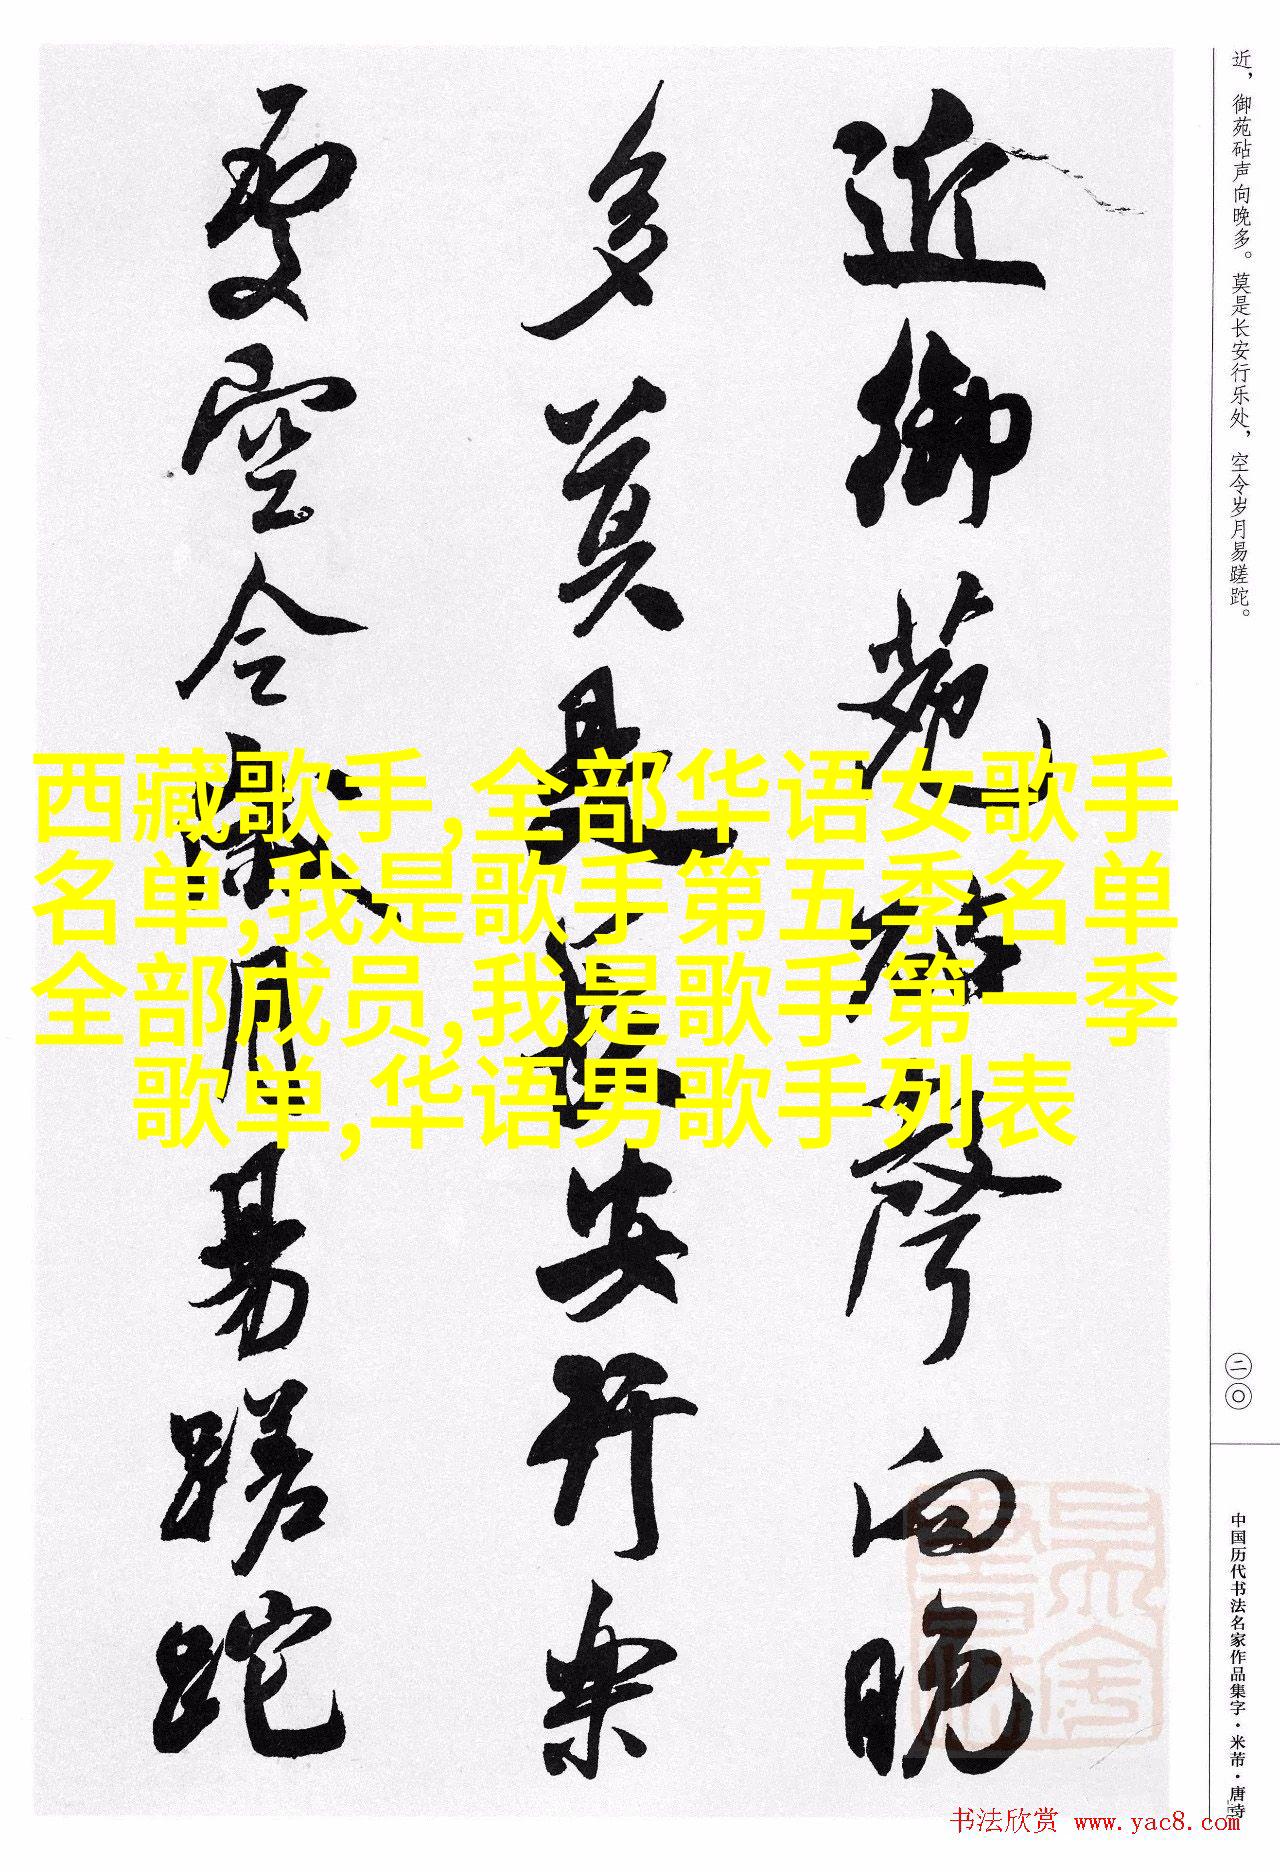 近，御苑砧声向晚多。莫是长安行乐处，空令岁月易蹉跎。
近御苑砧聲向晚
多莫是長安行樂
處空令歲月易蹉跎
西藏歌手,全部华语女歌手
名单,我是歌手第五季名单
全部成员,我是歌手第一季
歌单,华语男歌手列表
二〇
中国历代书法名家作品集字·米芾·唐诗
书法欣赏 www.yac8.com